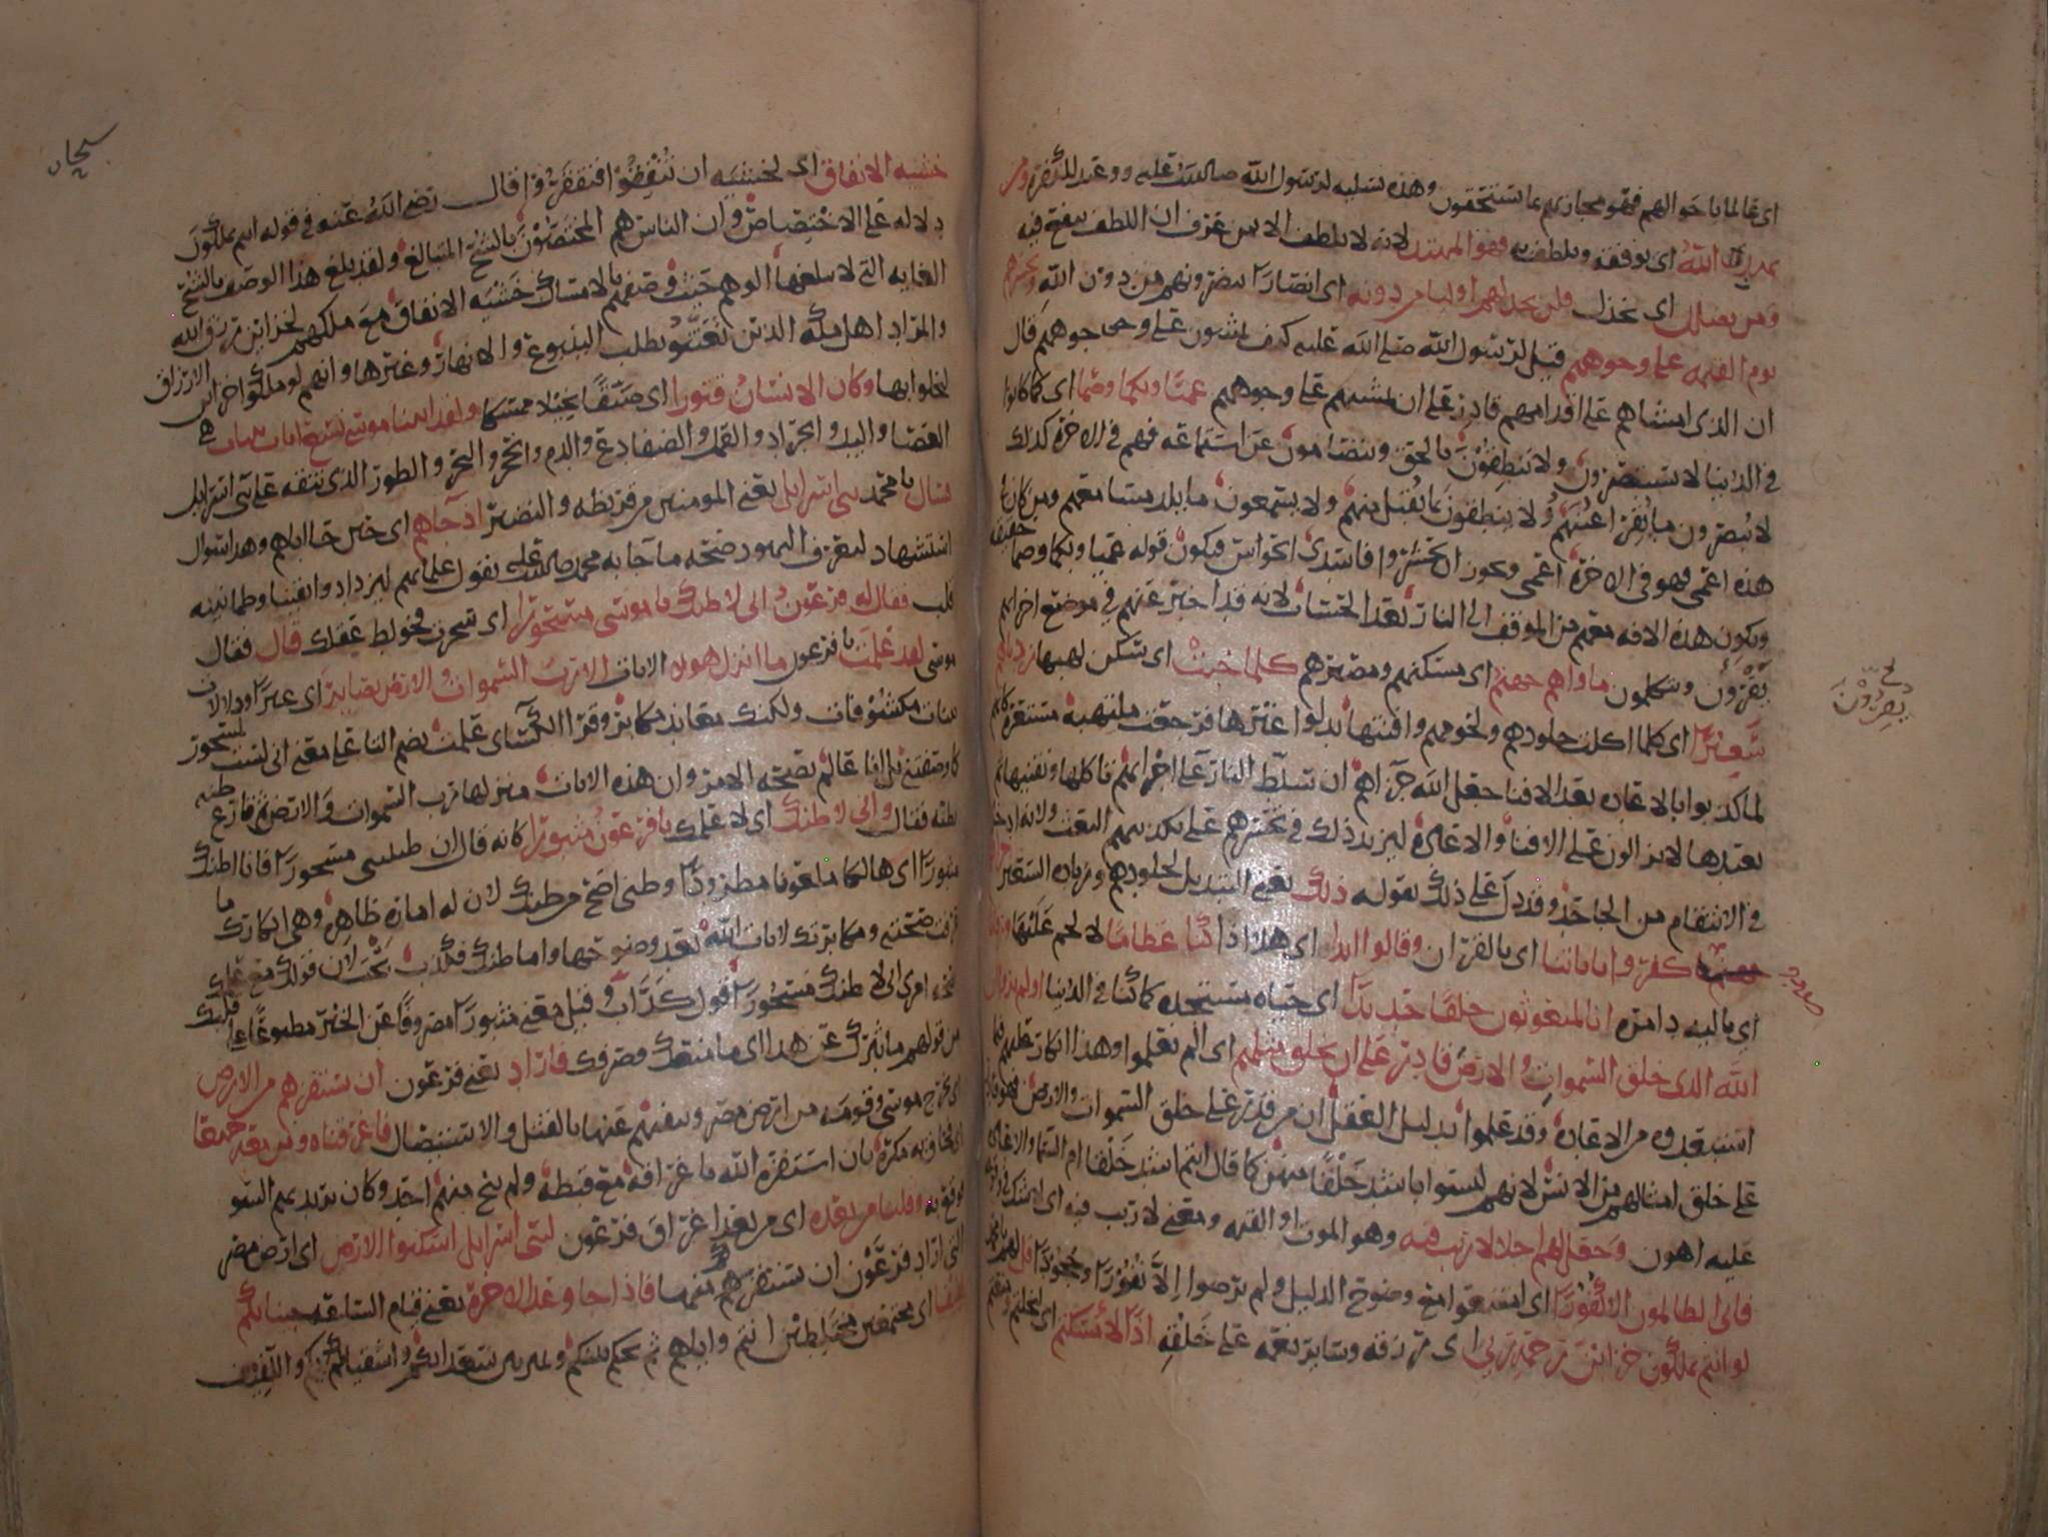 اى عالما باحوالهم فهو مجازيهم بما يستحقون وهذه تسليه لرسول الله صلى الله عليه ووعيد للكفره ومن
يهد الله اى يوفقه ويلطف به فهو المهتد لانه لا يلطف الا بمن عرف ان اللطف ينفع فيه
ومن يضلل اى يخذل فلن تجد لهم اوليا من دونه اى انصارا ينصرونهم من دون الله ونحشرهم
يوم القيمه على وجوههم قيل لرسول الله صلى الله عليه كيف يمشون على وجوههم قال
ان الذى امشاهم على اقدامهم قادر على ان يمشيهم على وجوههم عميا وبكما وصما اى كما كانوا
فى الدنيا لا يستبصرون ولا ينطقون بالحق ويتصامون عن استماعه فهم فى الاخره كذلك
لا يبصرون ما يقر اعينهم ولا ينطقون بما يقبل منهم ولا يسمعون ما يلذ مسامعهم ومن كان فى
هذه اعمى فهو فى الاخره اعمى ويجوز ان يحشروا فاسدى الحواس فيكون قوله عميا وبكما وصما حقيقه
ويكون هذه الافه معهم من الموقف الى النار بعد الحساب لانه قد اخبر عنهم فى موضع اخر انهم
يقرون ويتكلمون ماواهم جهنم اى مسكنهم ومصيرهم كلما خبت اى سكن لهبها زدناهم
سعيرا اى كلما اكلت جلودهم ولحومهم وافنتها بدلوا غيرها فرجعت ملتهبه مستعره كانهم
لما كذبوا بالاعاده بعد الافنا جعل الله جزاهم ان سلط النار على اجزايهم تاكلها وتفنيها ثم
يعيدها لا يزالون على الافنا والاعاده ليزيد ذلك فى تحسرهم على تكذيبهم البعث ولانه ادخل
فى الانتقام من الجاحد وقد دل على ذلك بقوله ذلك يعنى التبديل لجلودهم وزياده السعير جزاوهم
كفروا باياتنا اى بالقران وقالوا ايذا اى هل اذا كنا عظاما لا لحم عليها ورفاتا
اى باليه دامره انا لمبعوثون خلقا جديدا اى حياه مستجده كما كنا فى الدنيا اولم يروا ان
الله الذى خلق السموات والارض قادر على ان يخلق مثلهم اى الم يعلموا وهذا انكار عليهم لما
استبعدوه من الاعاده وقد علموا بدليل العقل ان من قدر على خلق السموات والارض فهو قادر
على خلق امثالهم من الانس لانهم ليسوا باشد خلقا منهن كما قال اانتم اشد خلقا ام السما والاعاده
عليه اهون وجعل لهم اجلا لا ريب فيه وهو الموت او القيمه ومعنى لا ريب فيه اى لا شك
فابى الظالمون الا كفورا اى امتنعوا مع وضوح الدليل ولم يرضوا الا نفورا وجحودا قل لهم
لو انتم تملكون خزاين رحمة ربى اى رزقه وساير نعمه على خلقه اذا لامسكتم
يصرون
خشيه الانفاق اى لخشيه ان تنفقوا فتفتقروا قال رضى الله عنه فى قوله انتم تملكون
دلاله على الاختصاص وان الناس هم المختصون بالشح المتبالغ ولقد بلغ هذا الوصف بالشح
الغايه التى لا يبلغها الوهم حيث وصفهم بالامساك خشيه الانفاق مع ملكهم لخزاين رزق الله
والمراد اهل مكه الذين تعنتوا بطلب الينبوع والانهار وغيرها وانهم لو ملكوا خزاين الارزاق
لبخلوا بها وكان الانسان قتورا اى ضيقا بخيلا ممسكا ولقد اتينا موسى تسع ايات بينات هى
العصا واليد والجراد والقمل والضفادع والدم والحجر والبحر والطور الذى نتقه على بنى اسرايل
فسال يا محمد بنى اسرايل يعنى المومنين من قريظه والنضير اذ جاهم اى حين جا اباهم وهذا سوال
استشهاد ليعرف اليهود صحه ما جا به محمد صلى الله عليه بقول علمايهم ليزداد وايقينا وطمانينه
قلب فقال له فرعون انى لاظنك يا موسى مسحورا اى سحرت فخولط عقلك قال فقال
موسى لقد علمت يا فرعون ما انزل هولا الايات الا رب السموات والارض بصاير اى عبرا ودلالات
بينات مكشوفات ولكنك معاند مكابر وقرا الكساى علمت بضم التا على معنى انى لست بمسحور
كما وصفتنى بل انا عالم بصحه الامر وان هذه الايات منزلها رب السموات والارض ثم قارع ظنه
بظنه فقال وانى لاظنك اى لاعلمك يا فرعون مثبورا كانه قال ان ظننتنى مسحورا فانا اظنك
مثبورا اى هالكا ملعونا مطرودا وظنى اصح من ظنك لان له اماره ظاهره وهى انكارك ما
عرفت صحته ومكابرتك لايات الله بعد وضوحها واما ظنك فكذب بحت لان قولك مع علمك
بصحه امرى انى لاظنك مسحورا قول كذاب وقيل معنى مثبورا مصروفا عن الخير مطبوعا على قلبك
من قولهم ما ثبرك عن هذا اى ما منعك وصرفك فاراد يعنى فرعون ان يستفزهم من الارض
اى يخرج موسى وقومه من ارض مصر وينفيهم عنها بالقتل والاستيصال فاغرقناه ومن معه جميعا
اى فحاق به مكره بان استفزه الله باغراقه مع قبطه ولم ينج منهم احد وكان يريد بهم السو
فوقع به وقلنا من بعده اى من بعد اغراق فرعون لبنى اسرايل اسكنوا الارض اى ارض مصر
التى اراد فرعون ان يستفزهم منها فاذا جا وعد الاخره يعنى قيام الساعه جينا بكم
لفيفا اى مجتمعين مختلطين انتم واياهم ثم يحكم بينكم ويميز بين سعدايكم واشقيايكم واللفيف